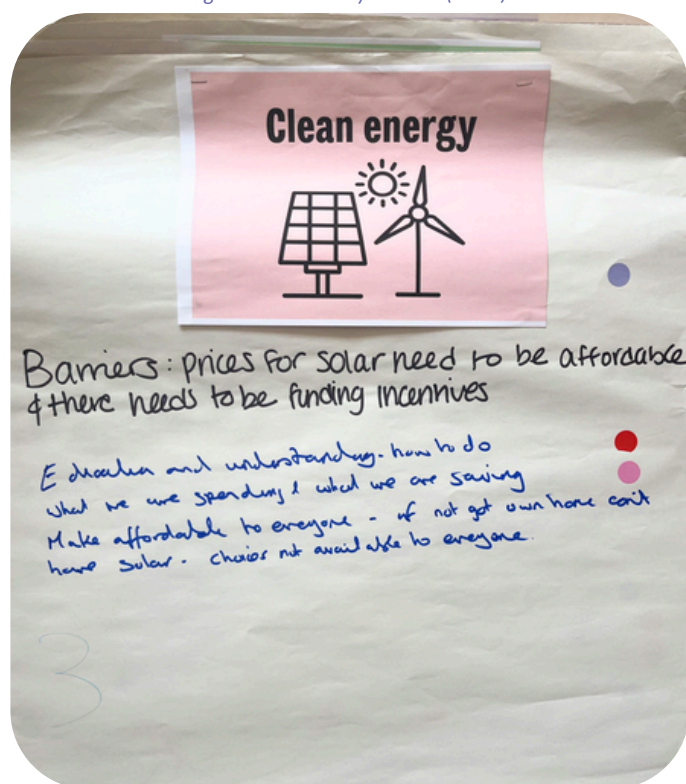 Clean energy
Barriers: prices for solar need to be affordable
& there needs to be funding incentives
Education and understanding. how to do
what we are spending & what we are saving
Make affordable to everyone - if not got own home can't
have solar. Choices not available to everyone.
3